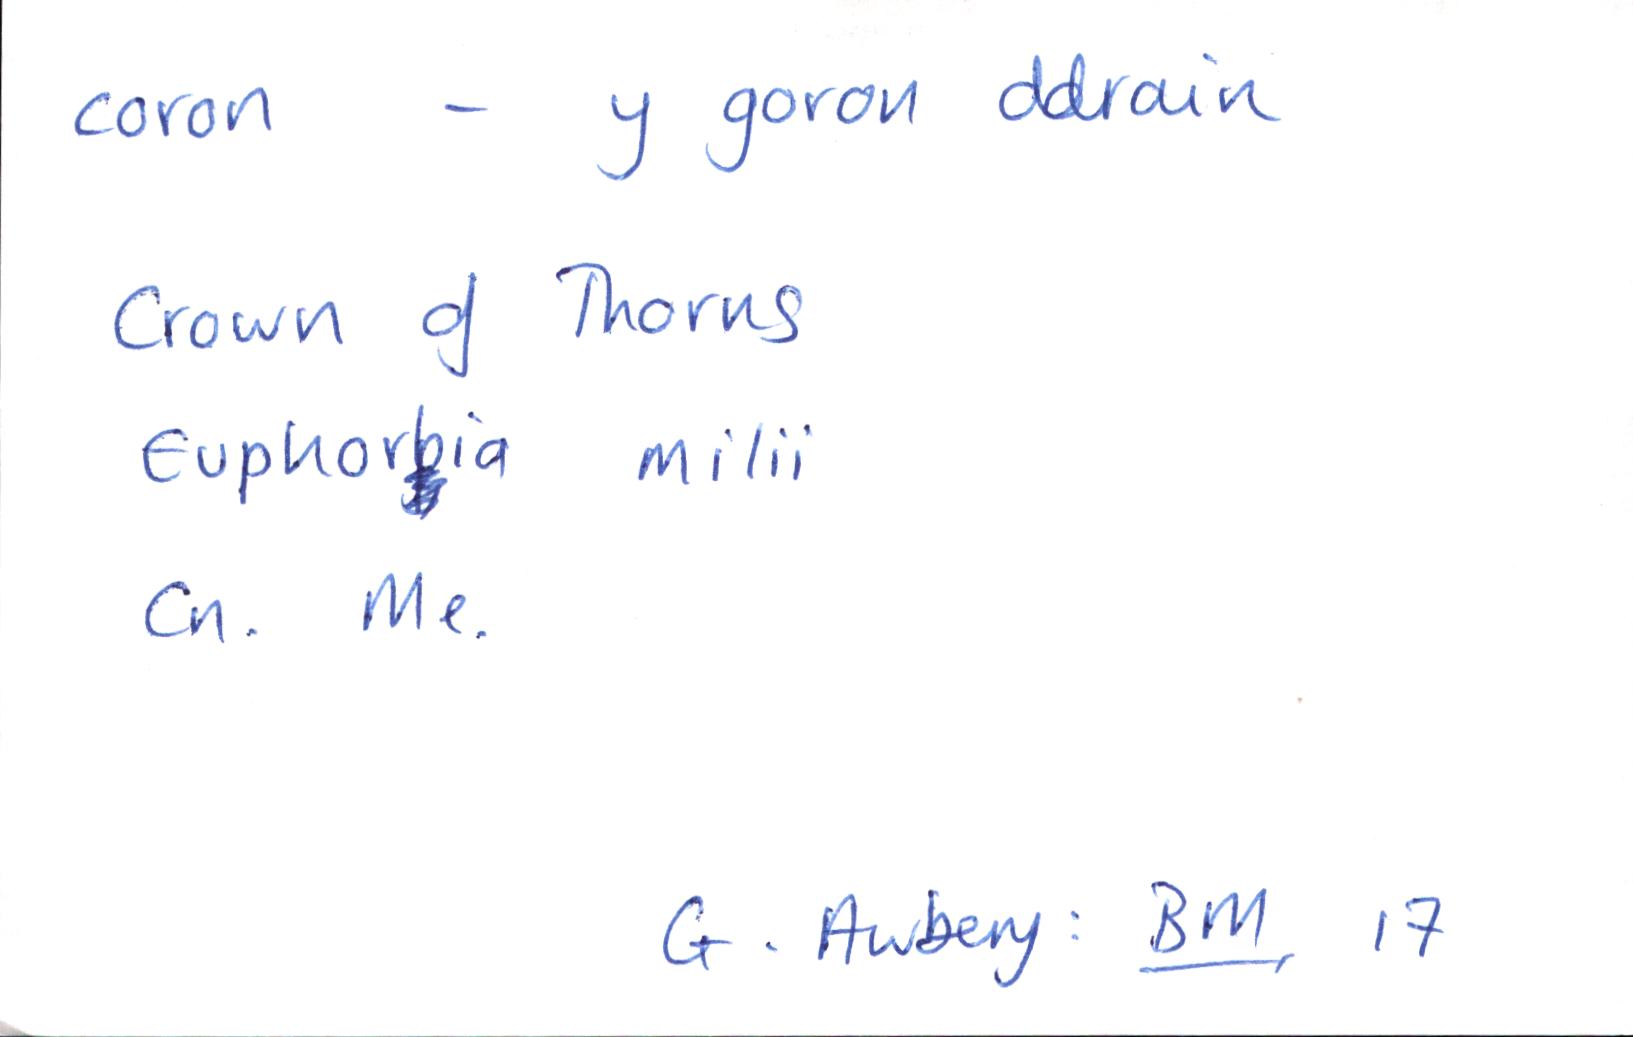 coron - y goron ddrain
Crown of Thorns
Euphorbia milii
Cn. Me.
G. Awbery: BM, 17